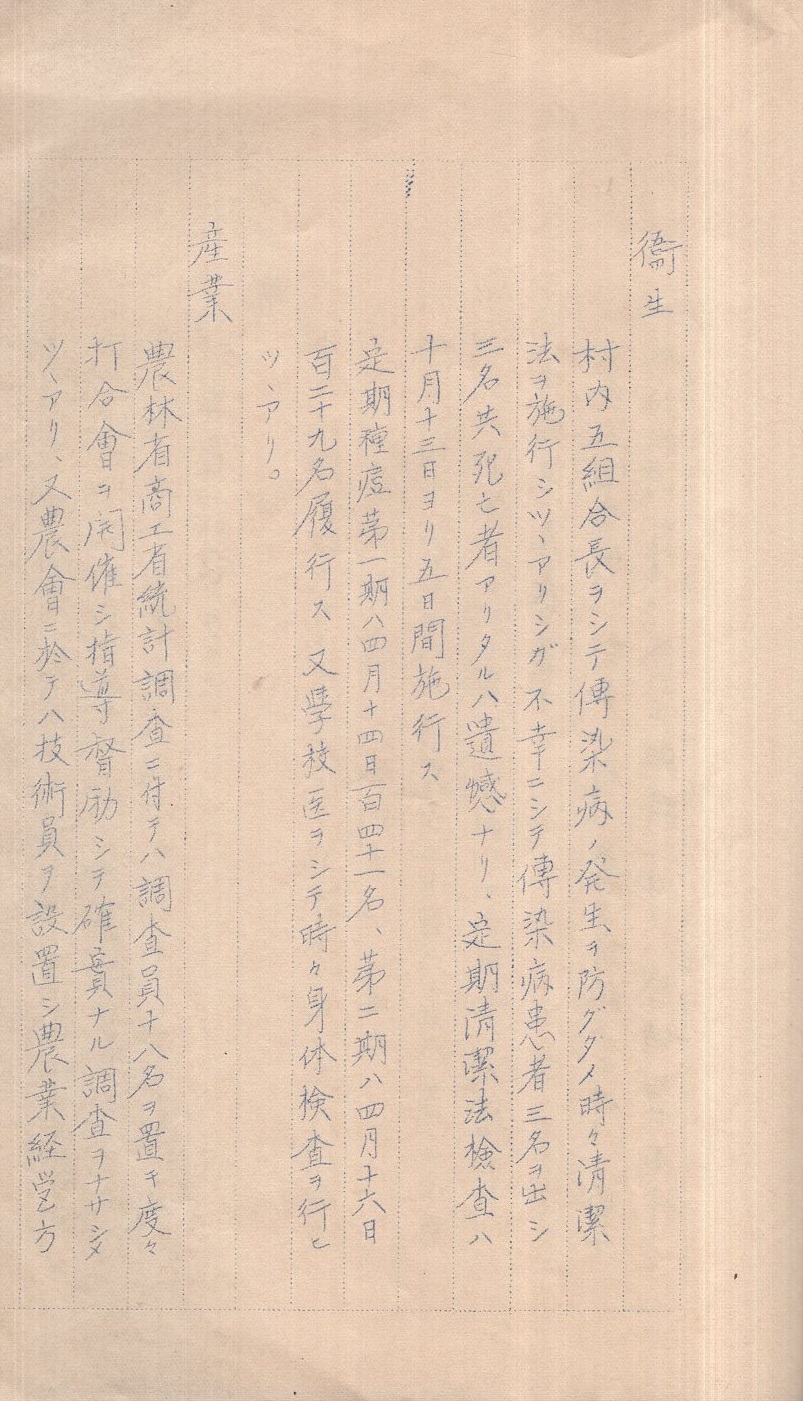 衞生
村内五組合長ヲシテ傳染病ノ発生ヲ防グタメ時々清潔
法ヲ施行シツヽアリシガ不幸ニシテ傳染病患者三名ヲ出シ
三名共死亡者アリタルハ遺憾ナリ、定期清潔法檢査ハ
十月十三日ヨリ五日間施行ス
定期種痘第一期ハ四月十四日百四十一名、第二期ハ四月十六日
百二十九名履行ス 又學校医ヲシテ時々身体検査ヲ行ヒ
ツヽアリ。
産業
農林省商工省統計調査ニ付テハ調査員十八名ヲ置キ度々
打合會ヲ開催シ指導督励シテ確實ナル調査ヲナサシメ
ツヽアリ、又農會ニ於テハ技術員ヲ設置シ農業経営方